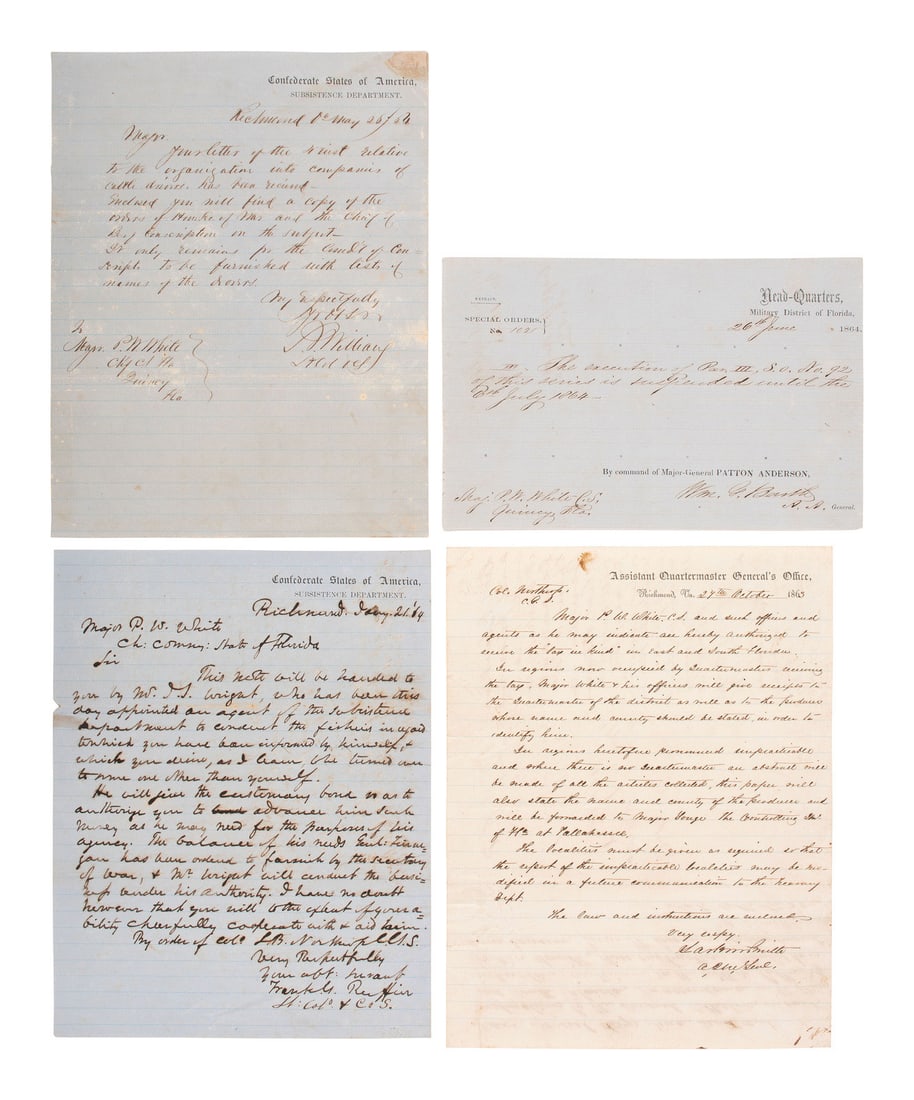 Confederate States of America,
SUBSISTENCE DEPARTMENT.
Richmond Va May 26/64
Major
Your letter of the inst relative
to the organization into companies of
cattle drivers has been
Enclosed you will find a copy of the
orders of War and the Chief of
Conscription on the subject—
It only remains for the Comdt of Con-
scripts to be furnished with lists of
names of the
Very Respectfully
Yr Ob Svt
Williams
To
Major P. W. White
Quincy
Fla
Head-Quarters,
Military District of Florida,
SPECIAL ORDERS,
No. 102
26th June 1864.
III. The execution of Par. III, S.O. No. 92
of this series is suspended until the
6th July 1864—
By command of Major-General PATTON ANDERSON.
Maj. P. W. White C.S.
Quincy, Fla.
Wm. G. Barth
A. A. General.
Confederate States of America,
SUBSISTENCE DEPARTMENT.
Richmond. Jany. 21st 64
Major P. W. White
Ch: Commy: State of Florida
Sir
This note will be handed to
you by Mr. Wright, who has been this
day appointed an agent of the subsistence
department to conduct the fisheries in regard
to which you have been informed by himself, &
which you desire, as I learn, to be turned over
to some one other than yourself.
He will give the customary bond so as to
authorize you to advance him such
money as he may need for the purposes of his
agency. The balance of his needs Genl: Finne-
gan has been ordered to furnish by the secretary
of war, & Mr. Wright will conduct the busi-
ness under his authority. I have no doubt
however that you will to the extent of your a-
bility cheerfully cooperate with & aid him.
By order of Col: L. B. Northrop C.G.S.
Very Respectfully
Your obt: servant
Frank G. Ruffin
Lt: Col: & C. S.
Assistant Quartermaster General's Office,
Richmond, Va. 27th October 1863
Col. Northrop
C.G.S.
Major P. W. White C.S. and such officers and
agents as he may indicate are hereby authorized to
receive the tax in kind in East and South Florida.
In regions now occupied by Quartermasters receiving
the tax, Major White & his officers will give receipts to
the Quartermaster of the district as well as to the producer
whose name and county should be stated, in order to
identify him.
In regions heretofore pronounced impracticable
and where there is no Quartermaster an abstract will
be made of all the articles collected, this paper will
also state the name and county of the producer and
will be forwarded to Major the Controlling Qr.
Mr. at Tallahassee.
The localities must be given as required so that
the report of the impracticable localities may be mo-
dified in a future communication to the Treasury
Dept.
The law and instructions are enclosed
Very respy.
Larkin Smith
A.Q.M. Genl.